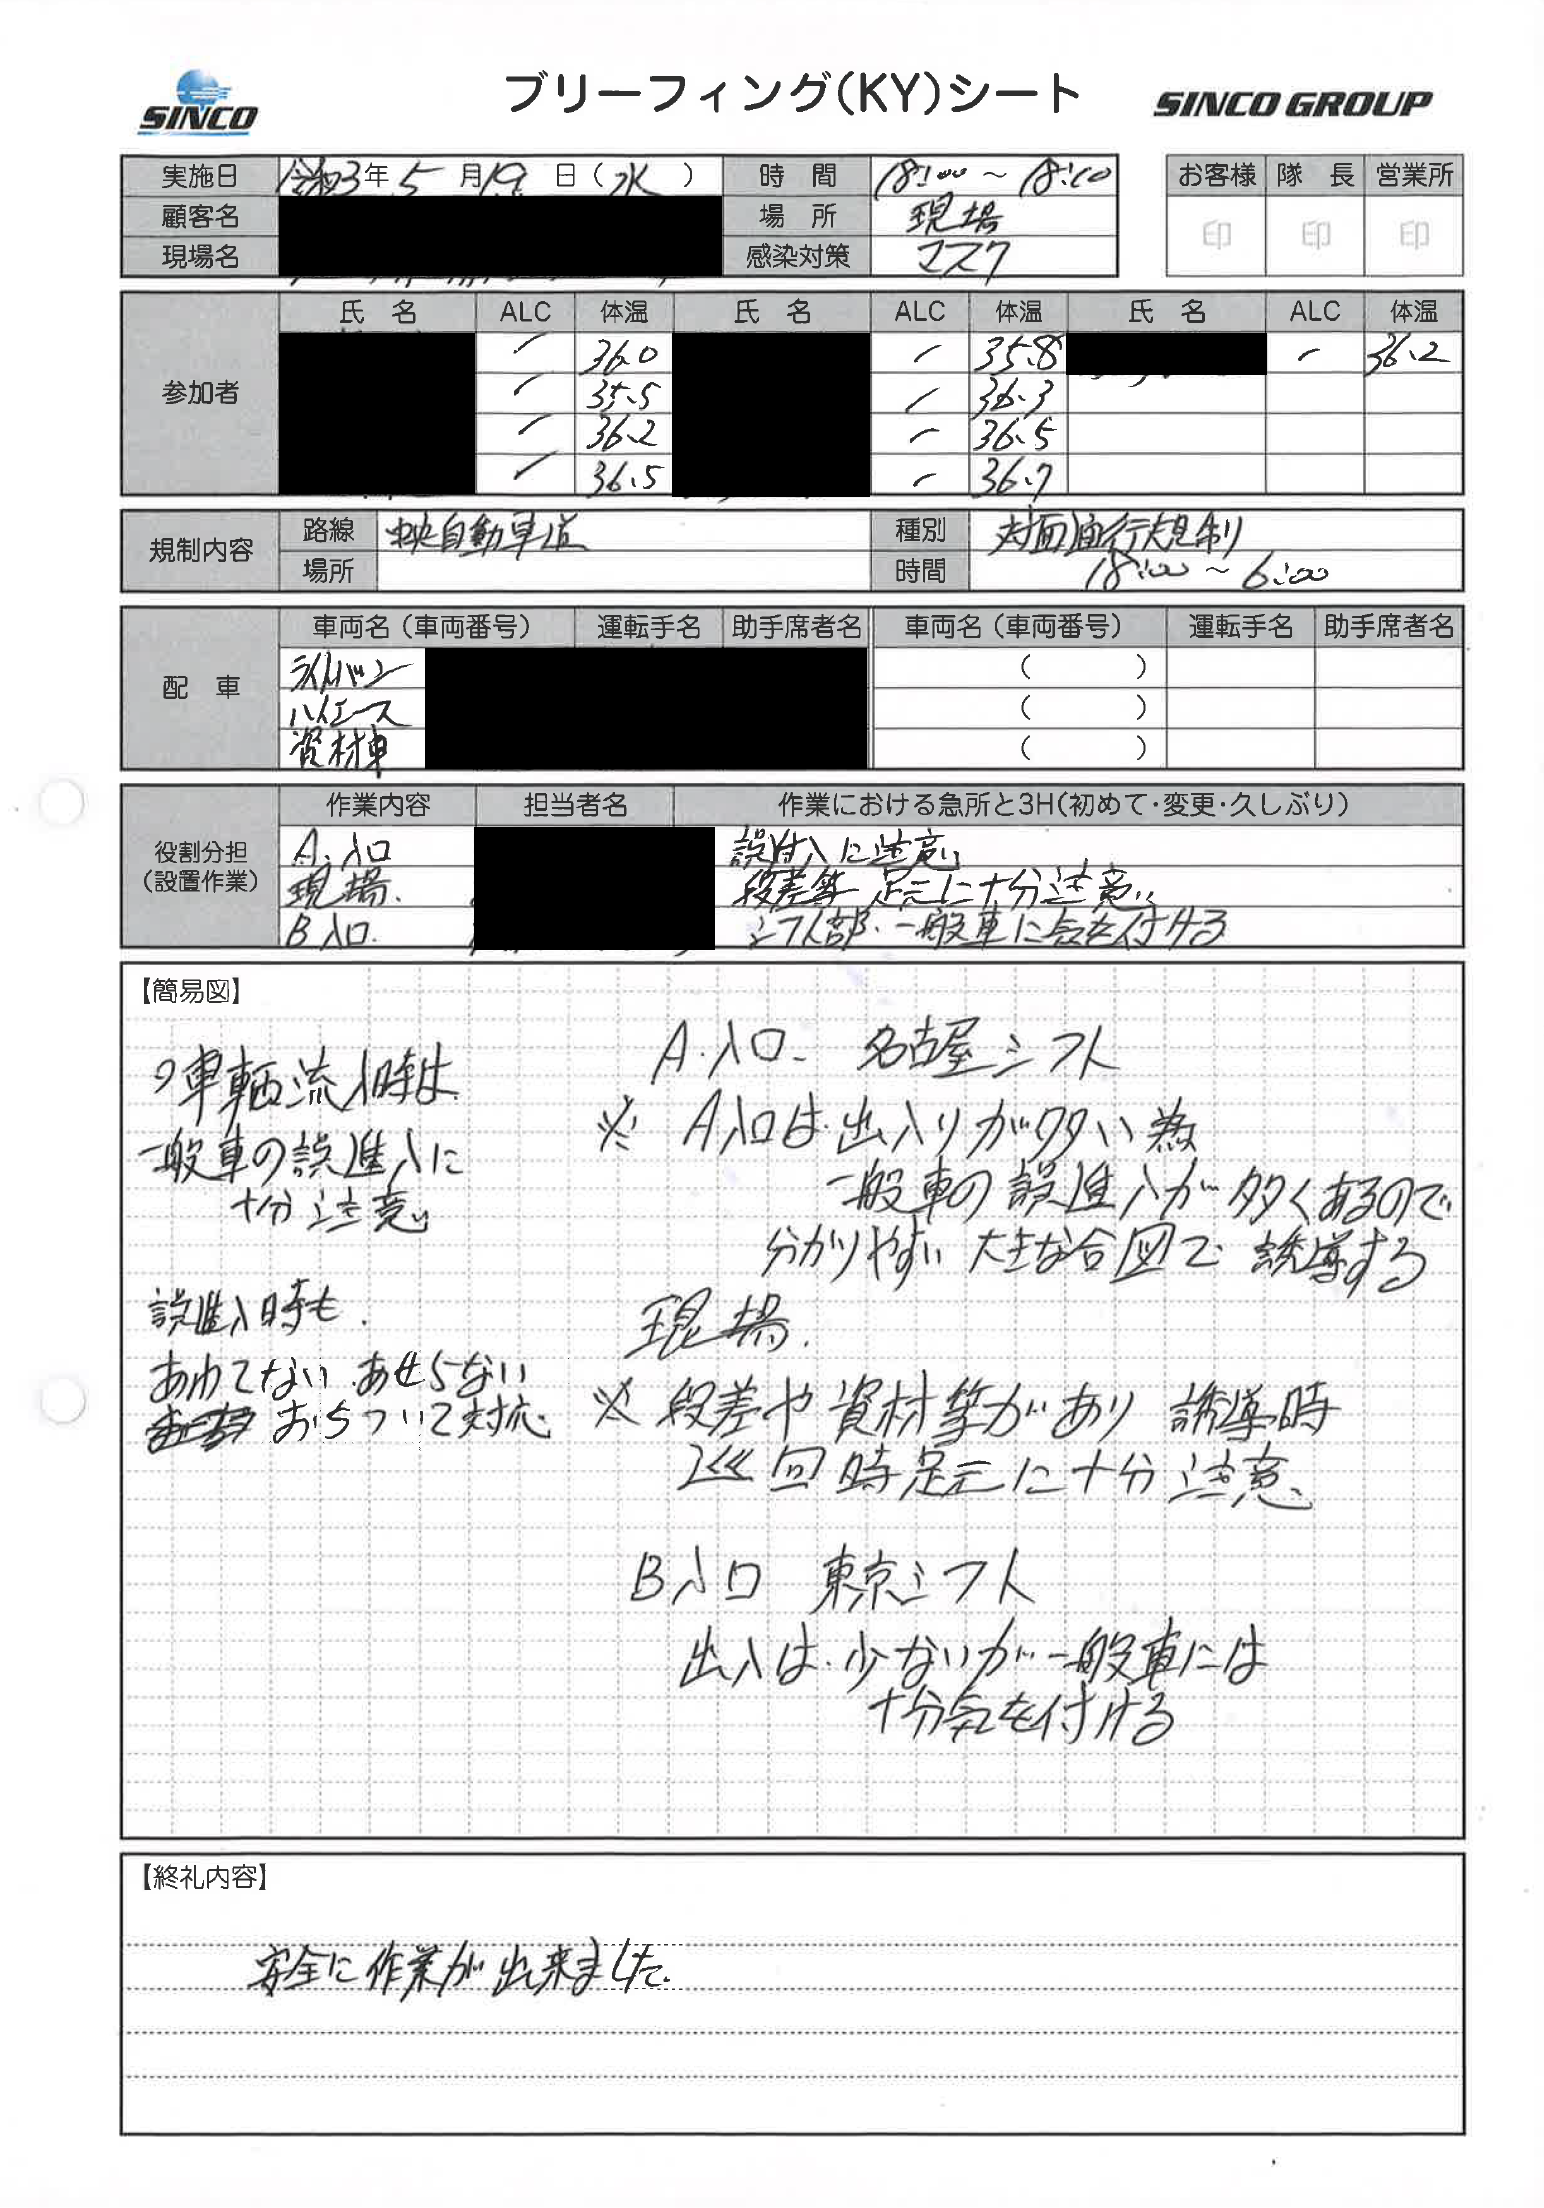 SINCO
ブリーフィング(KY)シート
SINCO GROUP
実施日 令和3年5月19日(水) 時間 18:00～18:10
お客様 隊長 営業所
顧客名 場所 現場
印 印 印
現場名 感染対策 マスク
参加者
氏名 ALC 体温 氏名 ALC 体温 氏名 ALC 体温
36.0 35.8 36.2
35.5 36.3
36.2 36.5
36.5 36.7
規制内容
路線 中央自動車道 種別 対面通行規制
場所 時間 18:00～6:00
配車
車両名(車両番号) 運転手名 助手席者名 車両名(車両番号) 運転手名 助手席者名
ライトバン ( )
ハイエース ( )
資材車 ( )
役割分担
(設置作業)
作業内容 担当者名 作業における急所と3H(初めて・変更・久しぶり)
A.入口 に注意
現場. 段差等 足元に十分注意
B入口. シフト部.一般車に気を付ける
【簡易図】
車輌流入時は
一般車の誤進入に
十分注意
誤進入時も.
あわてない.あせらない
おちついて対応.
A.入口. 名古屋シフト
※ A入口は.出入りが多い為
一般車の誤進入が多くあるので
分かりやすい大きな合図で誘導する
現場.
※ 段差や資材等があり誘導時
巡回時足元に十分注意.
B入口 東京シフト
出入は.少ないが一般車には
十分気を付ける
【終礼内容】
安全に作業が出来ました.